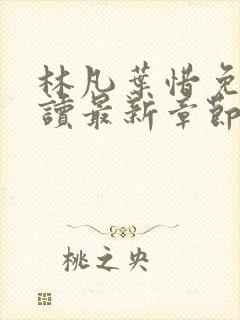 林凡葉惜免
讀最新章節
桃之央